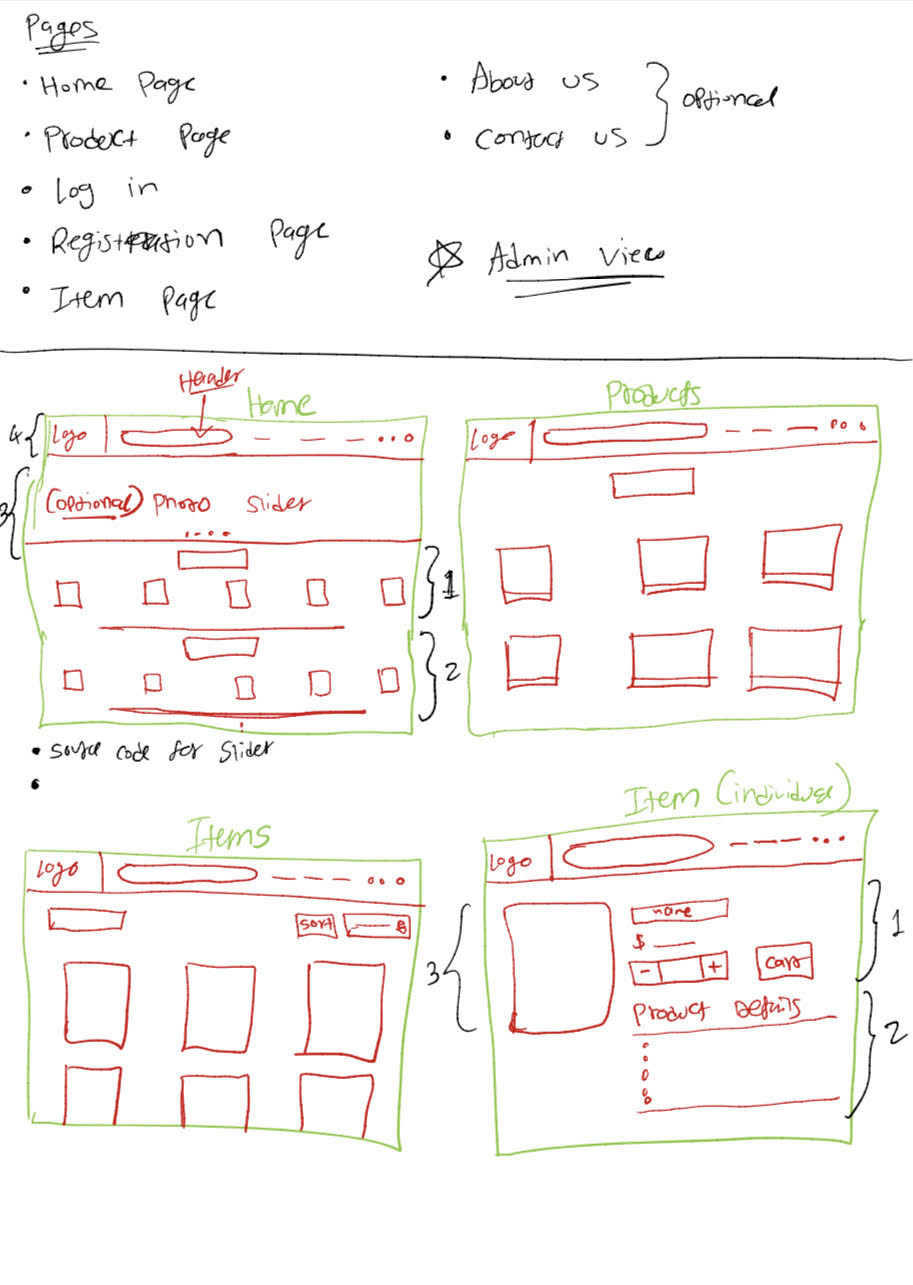 Pages
• Home Page
• Product Page
• Log in
• Registration Page
• Item Page
• About us
• Contact us
} optional
Admin View
Header
Home
4 {
Logo
3 {
(optional) Photo Slider
} 1
} 2
• Source code for Slider
•
Products
Logo
Items
Logo
Sort
Item (individual)
Logo
3 {
name
$
- +
Cart
} 1
Product Details
} 2